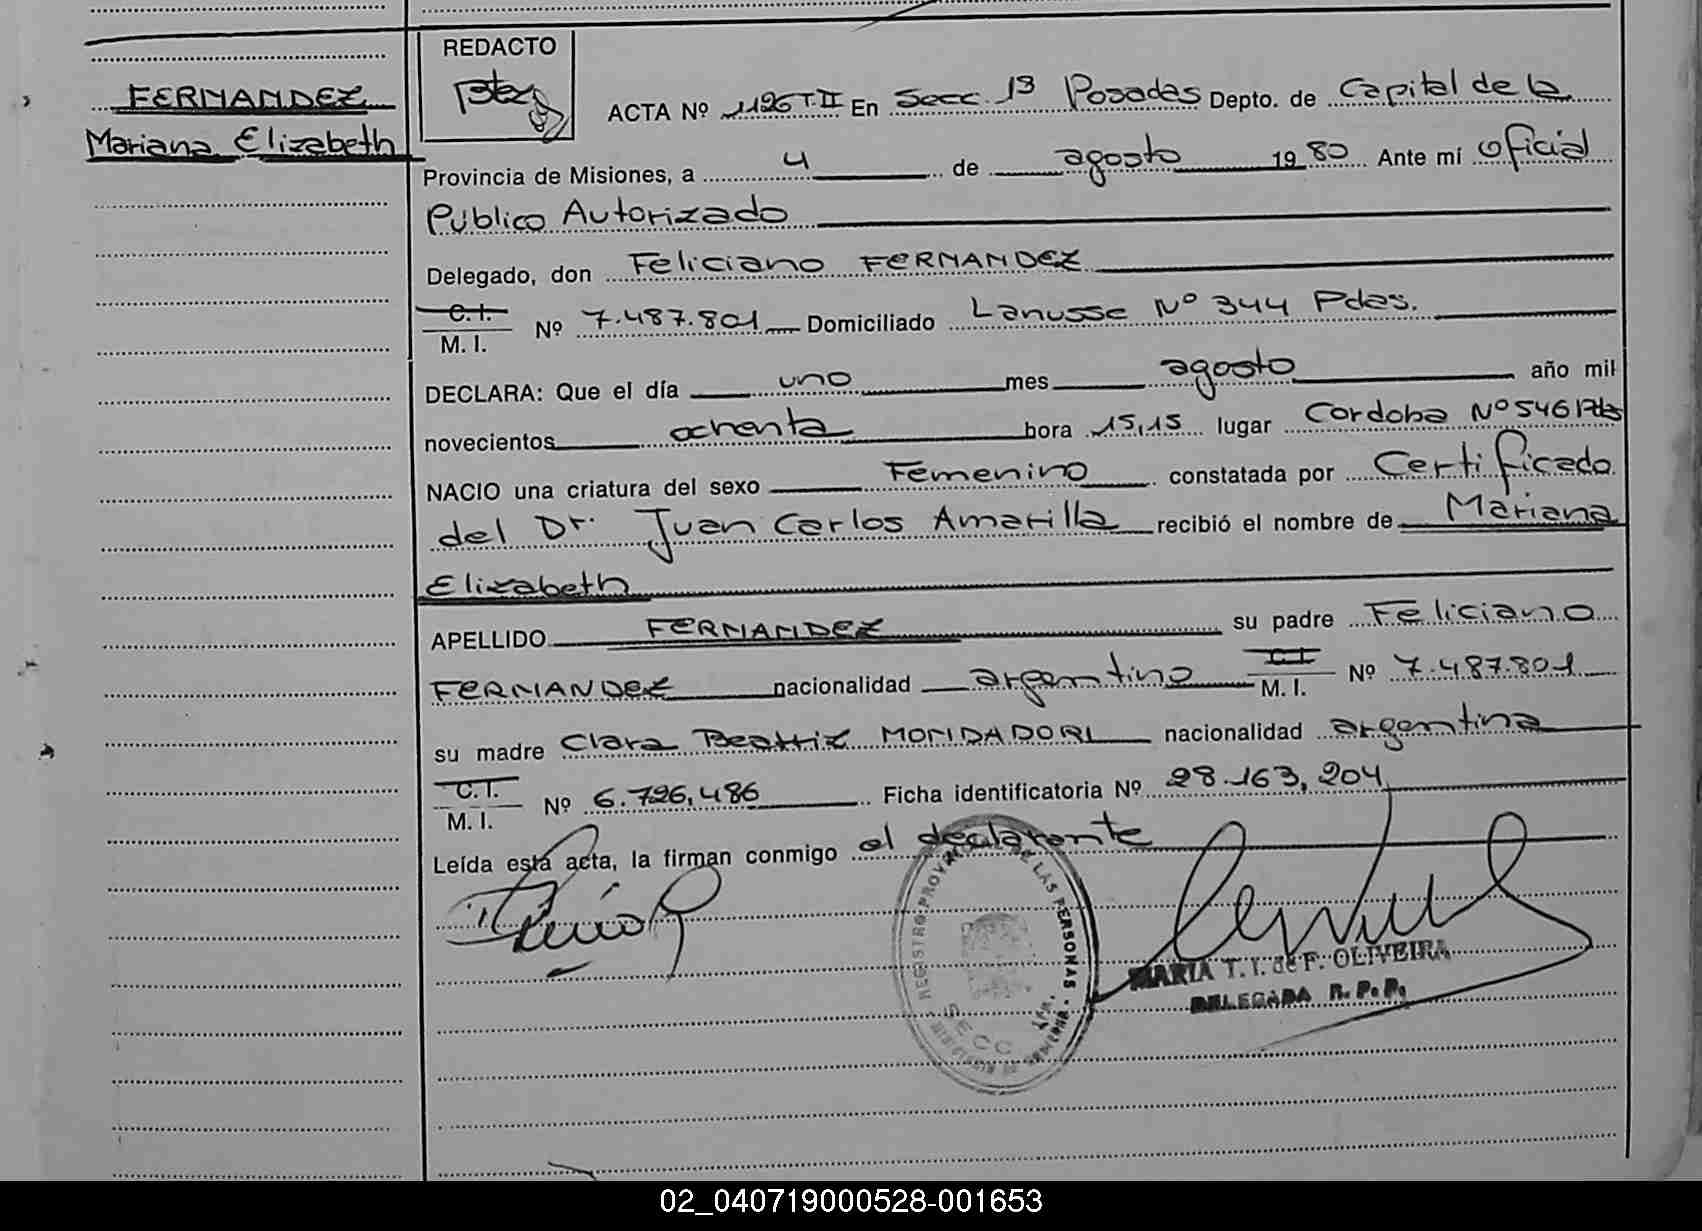 REDACTO
FERNANDEZ
Mariana Elizabeth
ACTA Nº 1126 T.II En Secc. 1ª Posadas Depto. de Capital de la
Provincia de Misiones, a 4 de agosto 19 80 Ante mí Oficial
Público Autorizado
Delegado, don Feliciano FERNANDEZ
C.I.
M. I. Nº 7.487.801 Domiciliado Lanusse Nº 344 Pdas.
DECLARA: Que el día uno mes agosto año mil
novecientos ochenta hora 15,15 lugar Cordoba Nº 546 Pdas
NACIO una criatura del sexo Femenino constatada por Certificado
del Dr. Juan Carlos Amarilla recibió el nombre de Mariana
Elizabeth
APELLIDO FERNANDEZ su padre Feliciano
FERNANDEZ nacionalidad argentino C.I. M. I. Nº 7.487.801
su madre Clara Beatriz MONDADORI nacionalidad argentina
C.I.
M. I. Nº 6.726,486 Ficha identificatoria Nº 28.163,204
Leída esta acta, la firman conmigo el declarante
REGISTRO PROV DE LAS PERSONAS
SECC
MARIA T. I. de F. OLIVEIRA
DELEGADA R. P. P.
02_040719000528-001653